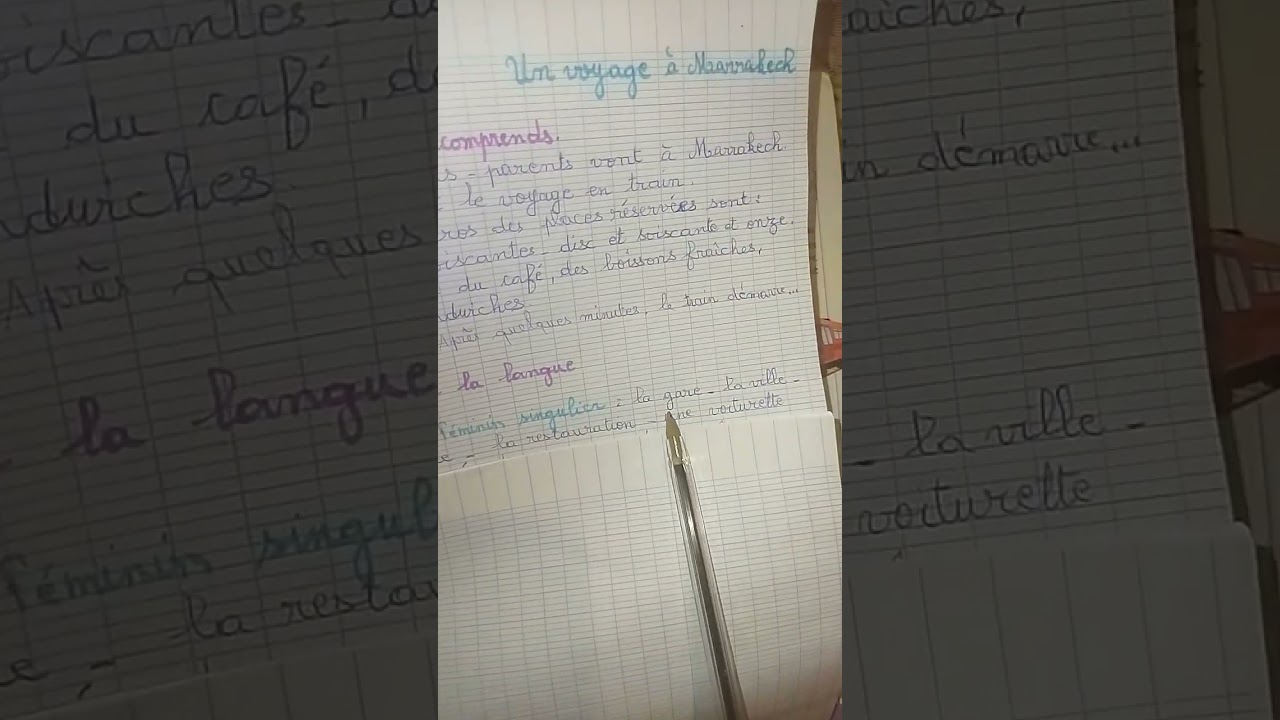 Un voyage à Marrakech
comprends.
s - parents vont à Marrakech.
le voyage en train.
ros des places réservées sont :
oiscantes - disc et soiscante et onze.
du café, des boissons fraîches,
dwiches.
Après quelques minutes, le train démarre...
la langue
féminin singulier : la gare - la ville -
e, - la restauration - une voiturette